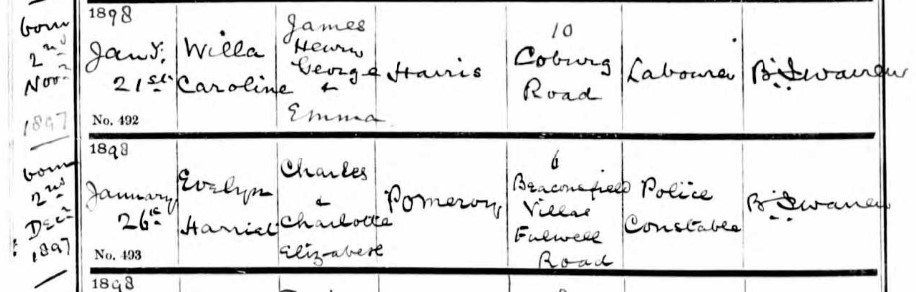 born
2nd
Nov
1897
1898
Jany.
21st
No. 492
Willa
Caroline
James
Henry
George
+
Emma
Harris
10
Coburg
Road
Labourer
born
2nd
Dec
1897
1898
January
26
No. 493
Evelyn
Harriet
Charles
+
Charlotte
Elizabeth
Pomeroy
6
Beaconsfield
Villas
Fulwell
Road
Police
Constable
1898